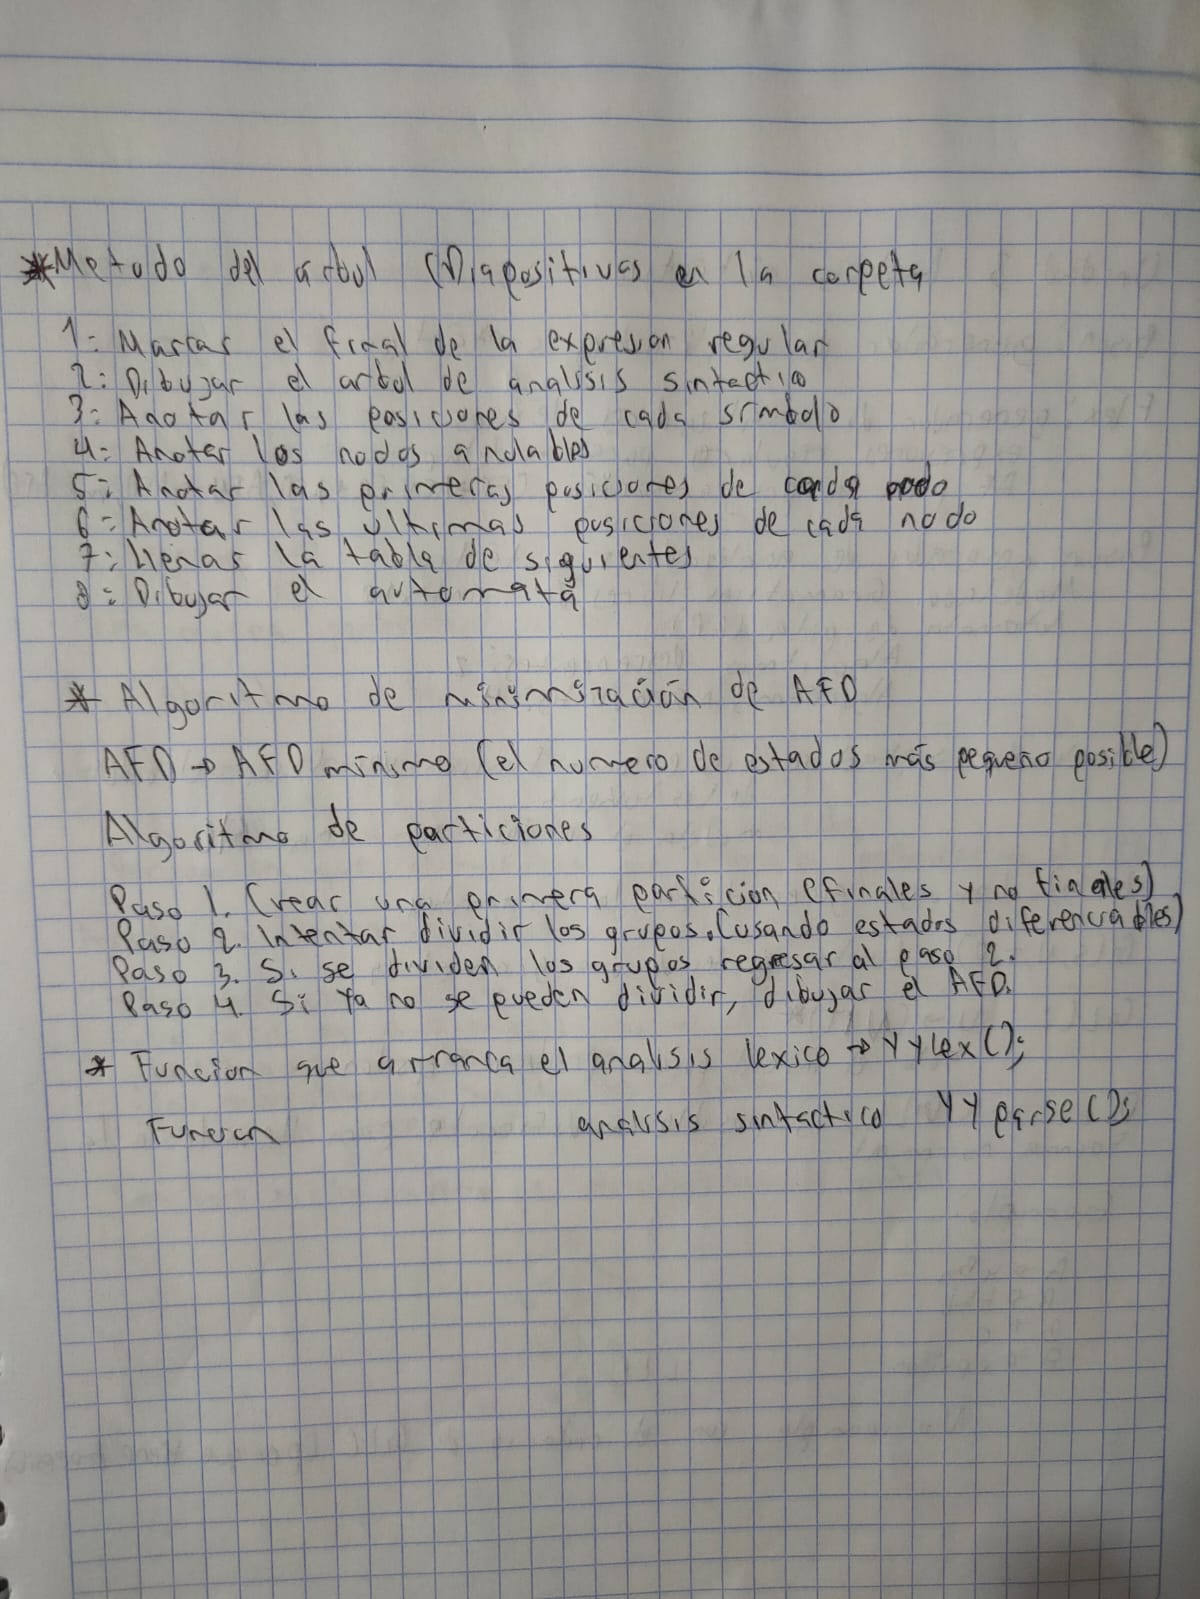 *Metodo del arbol (Diapositivas en la carpeta
1: Marcar el final de la expresion regular
2: Dibujar el arbol de analisis sintactico
3: Anotar las posiciones de cada simbolo
4: Anotar los nodos anulables
5: Anotar las primeras posiciones de cada nodo
6: Anotar las ultimas posiciones de cada nodo
7: Llenar la tabla de siguientes
8: Dibujar el automata
* Algoritmo de minimización de AFD
AFD → AFD minimo (el numero de estados más pequeño posible)
Algoritmo de particiones
Paso 1. Crear una primera particion (finales y no finales)
Paso 2. Intentar dividir los grupos. (usando estados diferenciables)
Paso 3. Si se dividen los grupos regresar al paso 2.
Paso 4. Si ya no se pueden dividir, dibujar el AFD.
* Funcion que arranca el analisis lexico → YYlex();
Funcion analisis sintactico YYparse();